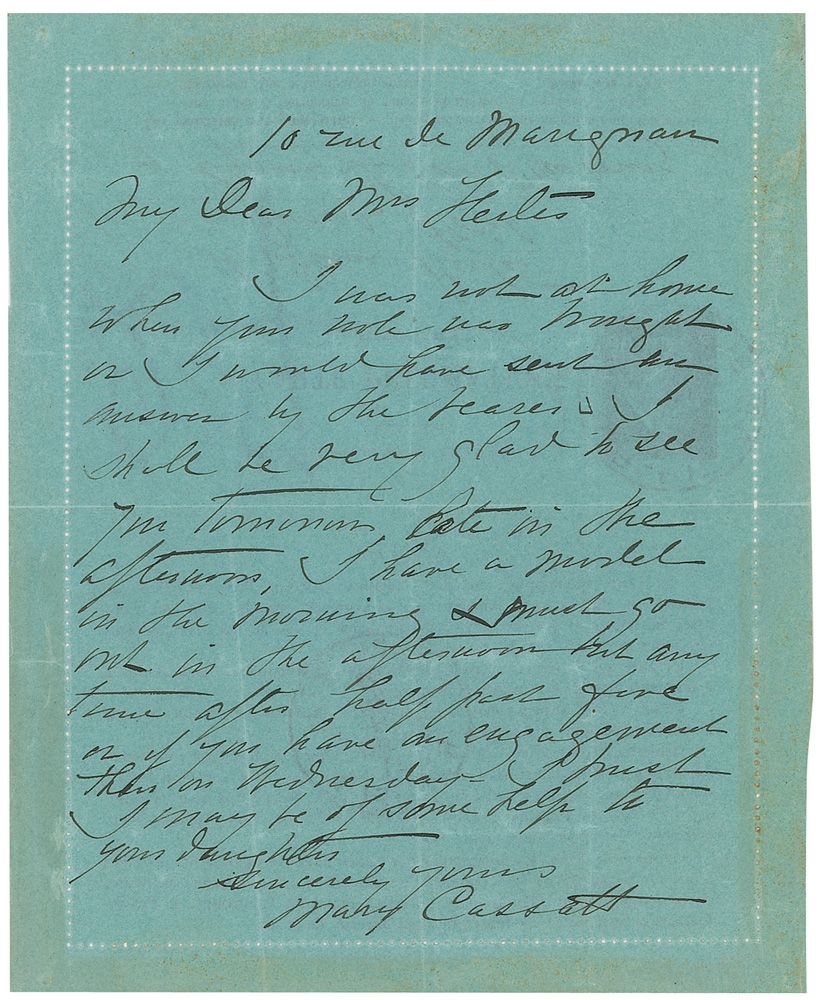 10 rue de Marignan
My Dear Mrs
I was not at home
when your note was brought
or I would have sent an
answer by the bearer. I
shall be very glad to see
you tomorrow late in the
afternoon, I have a model
in the morning & must go
out in the afternoon but any
time after half past five
or if you have an engagement
then on Wednesday - I trust
I may be of some help to
your daughter
Sincerely yours
Mary Cassatt